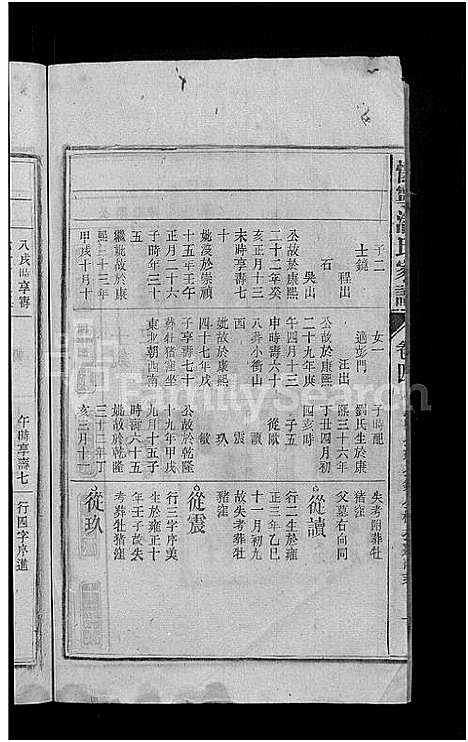 子二
士鏡
程出
石
吳出
公故於康熙
二十二年癸
亥正月十三
未時享壽七
十
妣沒於崇禎
十五年壬午
正月二十六
子時年三十
五
繼妣故於康
熙三十三年
甲戌十月十
女一
適彭門
汪出
公故於康熙
二十九年庚
午四月十三
申時壽六十
八葬小衝山
酉
妣故於康熙
四十七年戊
子享壽七十
葬牡猪窪坐
東北朝西南
子時配
劉氏生於康
熙三十六年
丁丑四月初
四亥時
子五
從歐
讀
震
玖
敏
公故於乾隆
十九年甲戌
九月十五子
時壽六十五
妣故於乾隆
三十二年丁
亥三月十一
失考附葬牡
猪窪
父墓右向同
從讀
行二生於雍
正三年乙巳
十一月初九
故失考葬牡
猪窪
從震
行三字序美
生於雍正十
年壬子故失
考葬牡猪窪
從玖
氏家譜
卷四
八戌時享壽
午時享壽七
行四字序道
FamilySearch